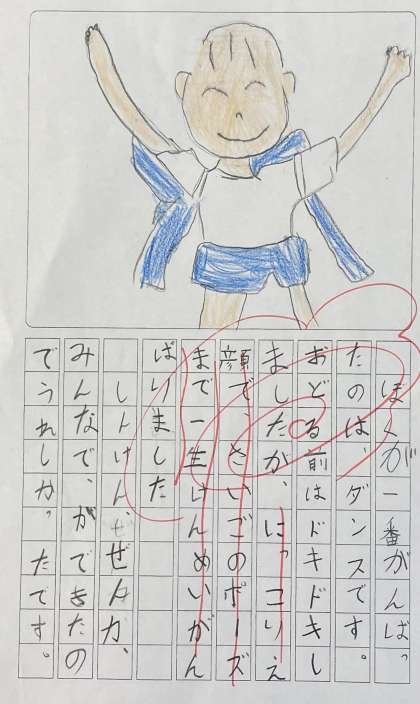 ぼくが一番がんばっ
たのは、ダンスです。
おどる前はドキドキし
ましたが、にっこりえ
顔で、さいごのポーズ
まで一生けんめいがん
ばりました
しんけん、
みんなで、ができたの
でうれしかったです。